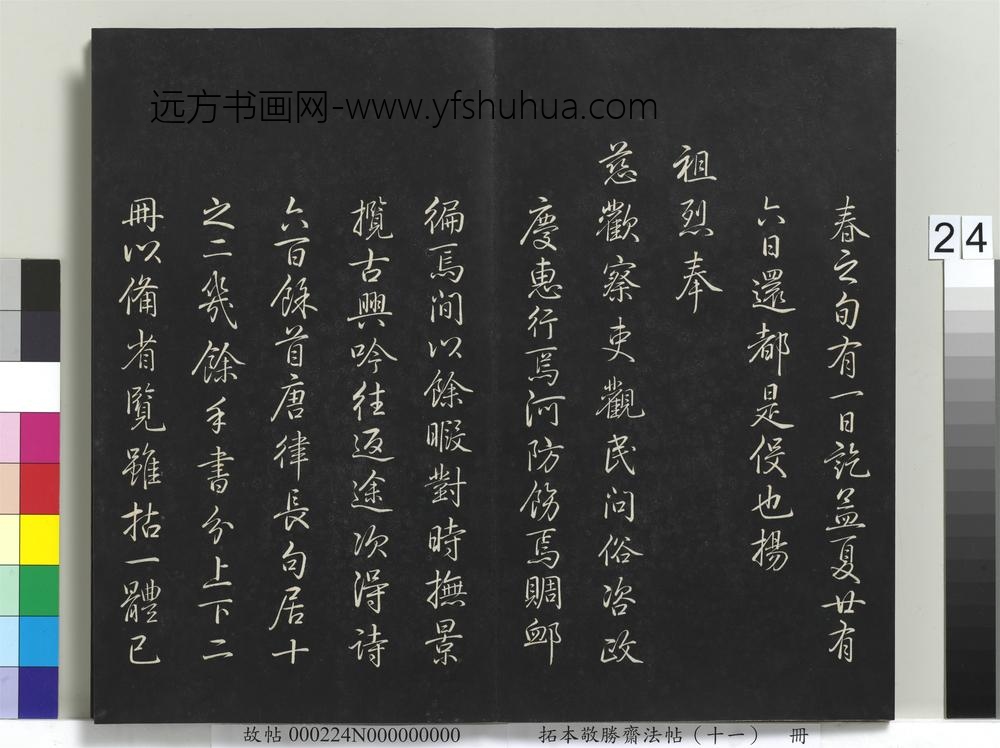 远方书画网-www.yfshuhua.com
春之旬有一日訖孟夏廿有
六日還都是役也揚
祖烈奉
慈歡察吏觀民问俗咨政
慶惠行焉河防飭焉賙䘏
徧焉间以餘暇對時撫景
攬古興吟往返途次得詩
六百餘首唐律長句居十
之二幾餘手書分上下二
冊以備省覧雖拈一體已
24
故帖 000224N000000000
拓本敬勝齋法帖（十一） 冊